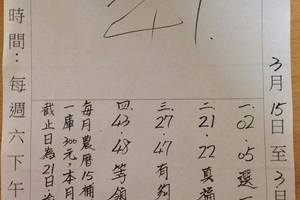 3月15日至3月
21.
一.02.05選一
二.21.22真福
三.27.47有夠
四.43.48等領
每月農曆15補
一庫300元.本月
截止日為21日.
時間：每週六下午